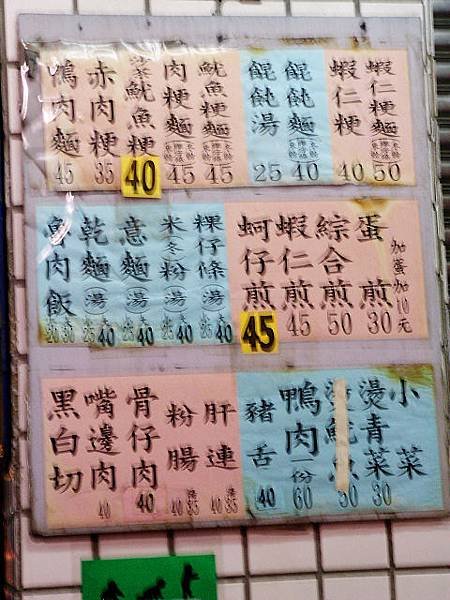 蝦仁粳麵 50
蝦仁粳 40
餛飩麵 40
餛飩湯 25
魷魚粳麵 45
肉粳麵 45
魷魚粳 40
赤肉粳 35
鴨肉麵 45
加蛋加10元
蛋煎 30
綜合煎 50
蝦仁煎 45
蚵仔煎 45
粿仔條 湯 40
米冬粉 湯 40
意麵 湯 40
乾麵 湯 40
魯肉飯
小菜
燙青菜 30
鴨肉一份 60
豬舌 40
肝連
粉腸
骨仔肉 40
嘴邊肉 40
黑白切